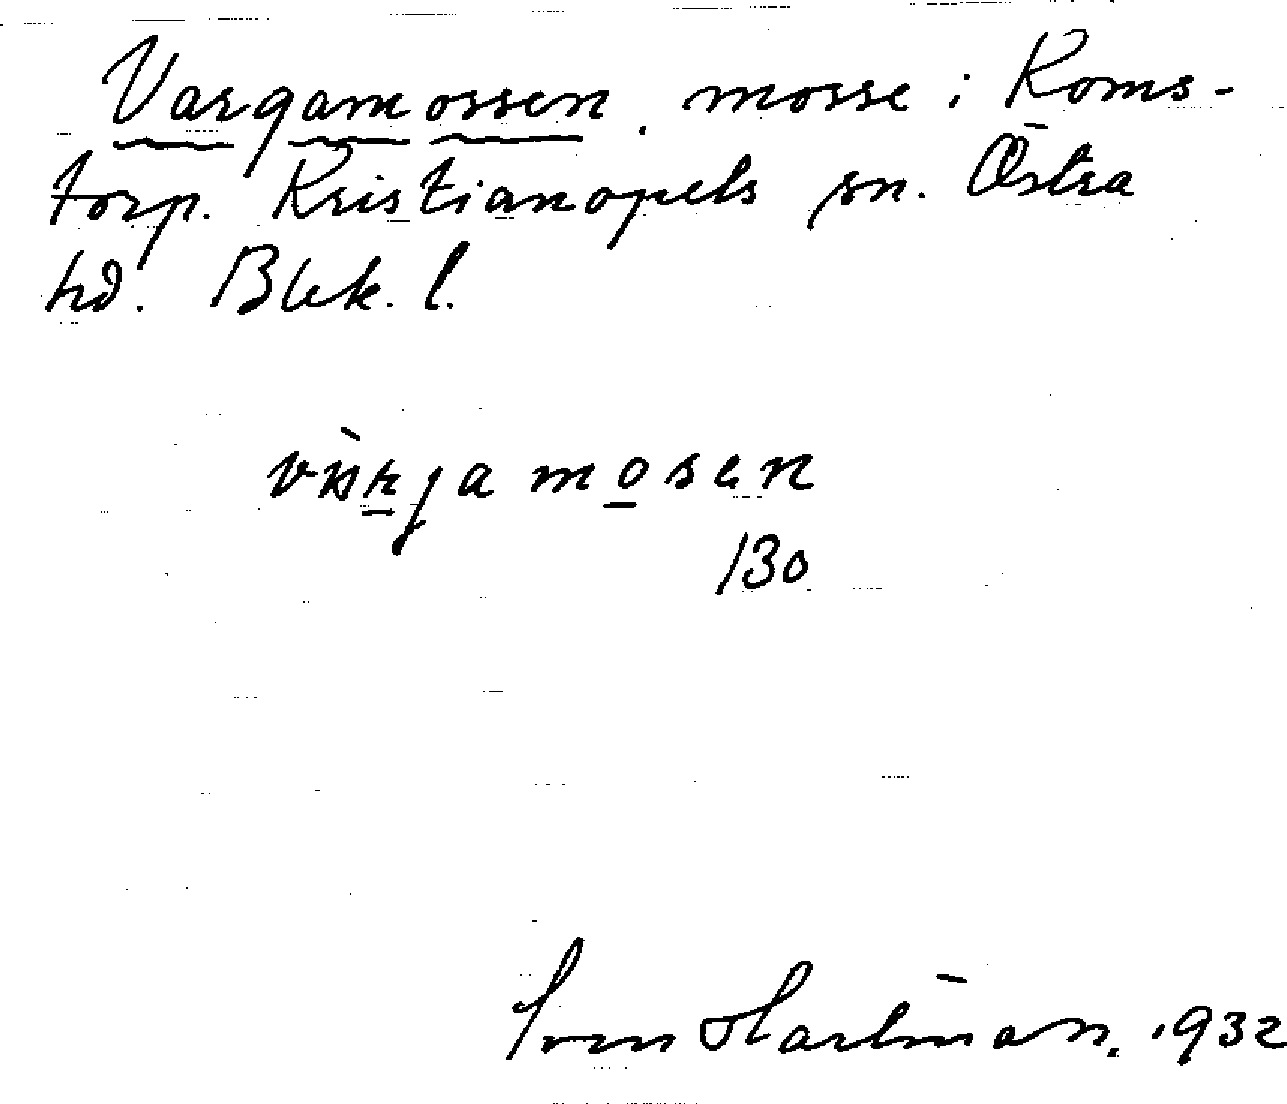 Vargamossen. mosse i Roms-
torp. Kristianopels sn. Östra
hd. Blek. l.
mosen
130
Sven Hartman. 1932